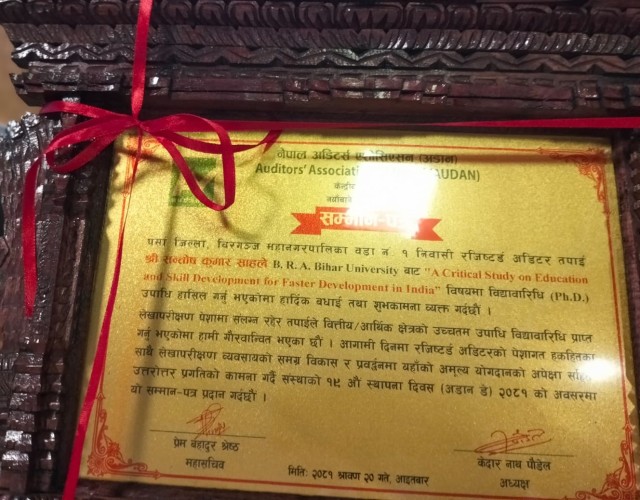 नेपाल अडिटर्स एसोसिएसन (अडान)
Auditors' Association AUDAN)
केन्द्रीय
सम्मान-पत्र
पर्सा जिल्ला, विरगञ्ज महानगरपालिका वडा नं. १ निवासी रजिष्टर्ड अडिटर तपाई
श्री सन्तोष कुमार साहले B. R. A. Bihar University बाट "A Critical Study on Education
and Skill Development for Faster Development in India" विषयमा विद्यावारिधि (Ph.D.)
उपाधि हासिल गर्नु भएकोमा हार्दिक बधाई तथा शुभकामना व्यक्त गर्दछौं ।
लेखापरीक्षण पेशामा संलग्न रहेर तपाईले वित्तीय/आर्थिक क्षेत्रको उच्चतम उपाधि विद्यावारिधि प्राप्त
गर्नु भएकोमा हामी गौरवान्वित भएका छौं । आगामी दिनमा रजिष्टर्ड अडिटरको पेशागत हकहितका
साथै लेखापरीक्षण व्यवसायको समग्र विकास र प्रवर्द्धनमा यहाँको अमूल्य योगदानको अपेक्षा
उत्तरोत्तर प्रगतिको कामना गर्दै संस्थाको १९ औं स्थापना दिवस (अडान डे) २०८१ को अवसरमा
यो सम्मान-पत्र प्रदान गर्दछौं ।
प्रेम बहादुर श्रेष्ठ
महासचिव
मितिः २०८१ श्रावण २० गते, आइतबार
केदार नाथ पौडेल
अध्यक्ष